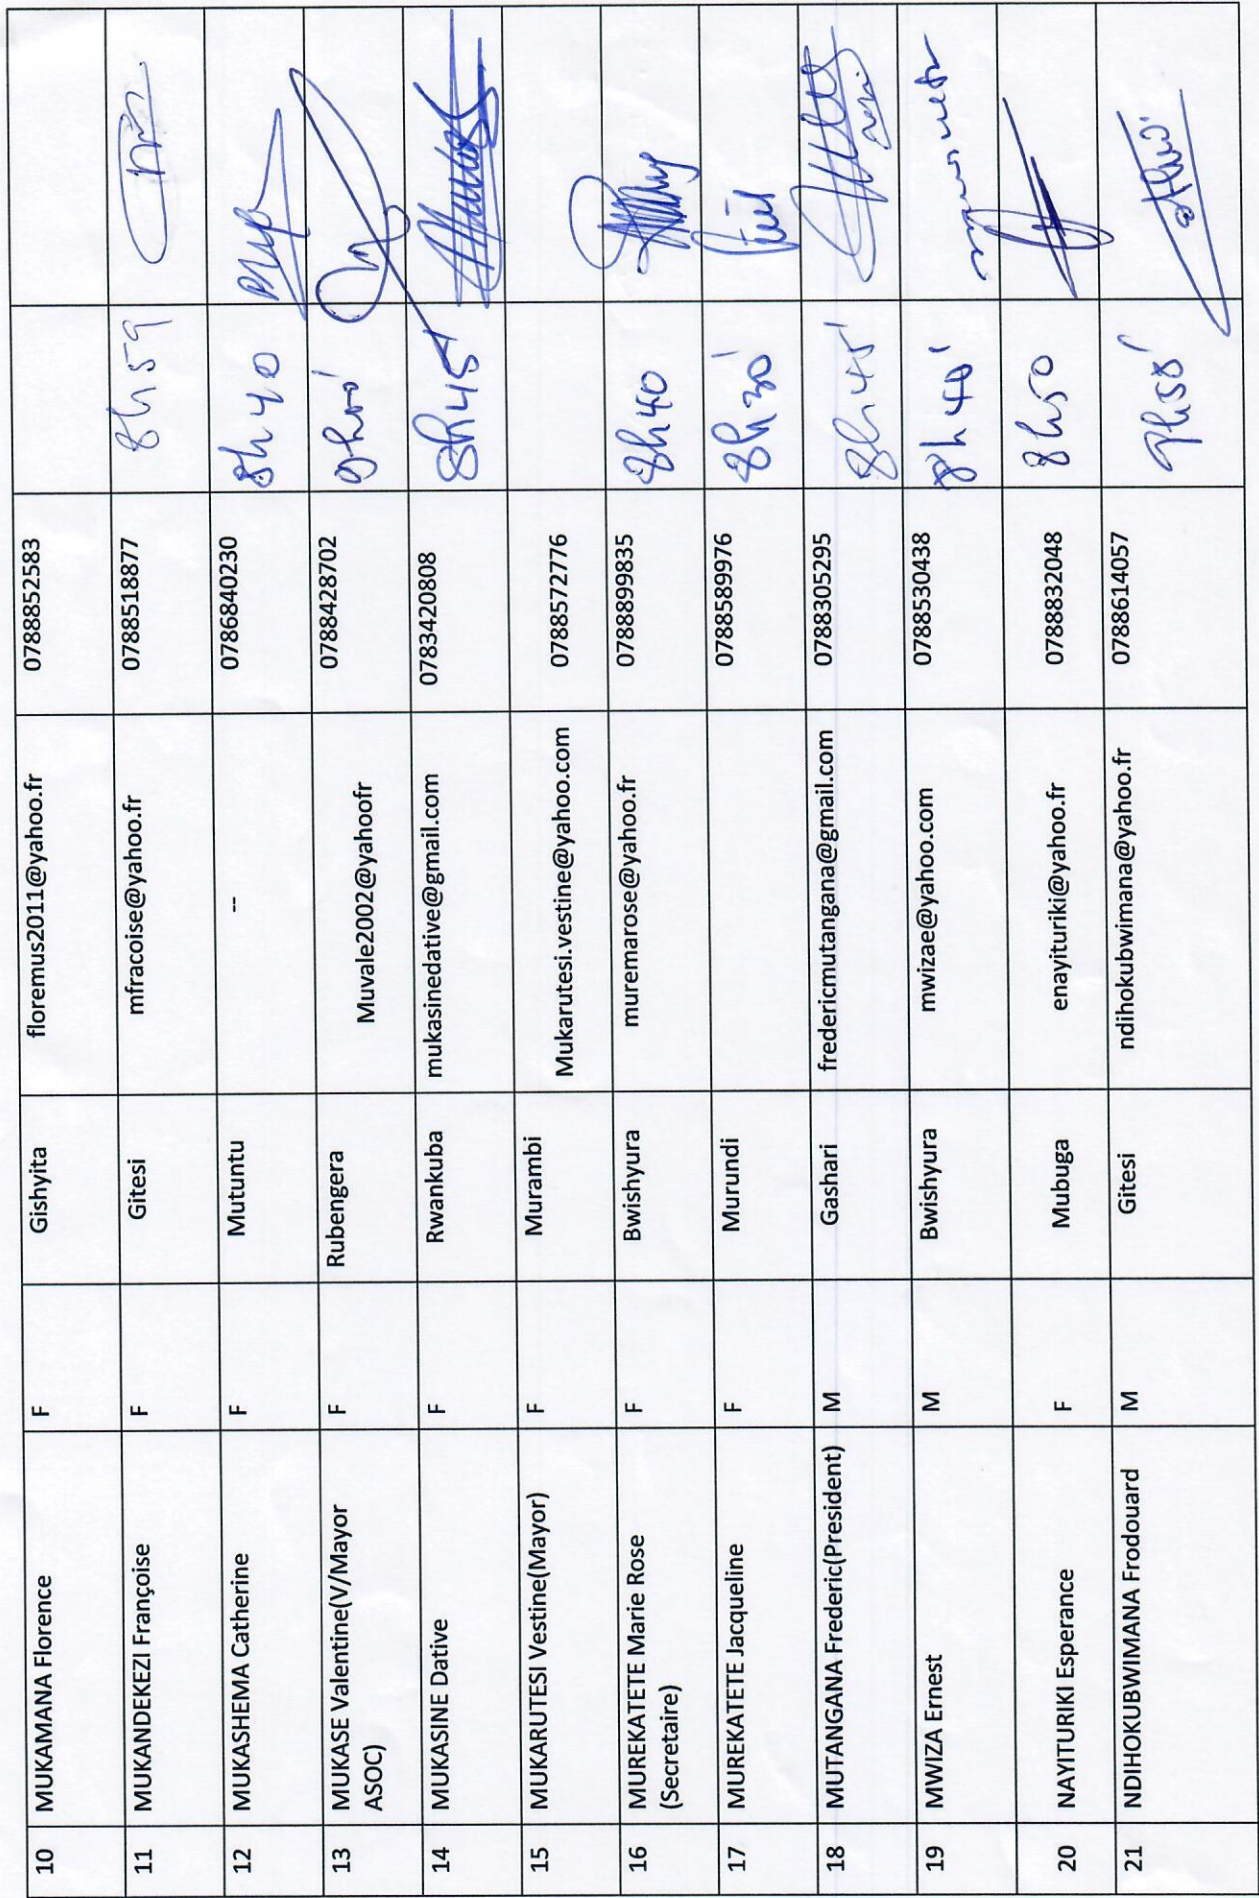 10 MUKAMANA Florence F Gishyita floremus2011@yahoo.fr 0788852583
11 MUKANDEKEZI Françoise F Gitesi mfracoise@yahoo.fr 0788518877 8h59
12 MUKASHEMA Catherine F Mutuntu -- 0786840230 8h40
13 MUKASE Valentine(V/Mayor F Rubengera Muvale2002@yahoofr 0788428702
ASOC)
14 MUKASINE Dative F Rwankuba mukasinedative@gmail.com 0783420808 8h45'
15 MUKARUTESI Vestine(Mayor) F Murambi Mukarutesi.vestine@yahoo.com 0788572776
16 MUREKATETE Marie Rose F Bwishyura muremarose@yahoo.fr 0788899835 8h40
(Secretaire)
17 MUREKATETE Jacqueline F Murundi 0788589976 8h30'
18 MUTANGANA Frederic(President) M Gashari fredericmutangana@gmail.com 0788305295 8h45'
19 MWIZA Ernest M Bwishyura mwizae@yahoo.com 0788530438 8h40'
20 NAYITURIKI Esperance F Mubuga enayituriki@yahoo.fr 0788832048 8h50
21 NDIHOKUBWIMANA Frodouard M Gitesi ndihokubwimana@yahoo.fr 0788614057